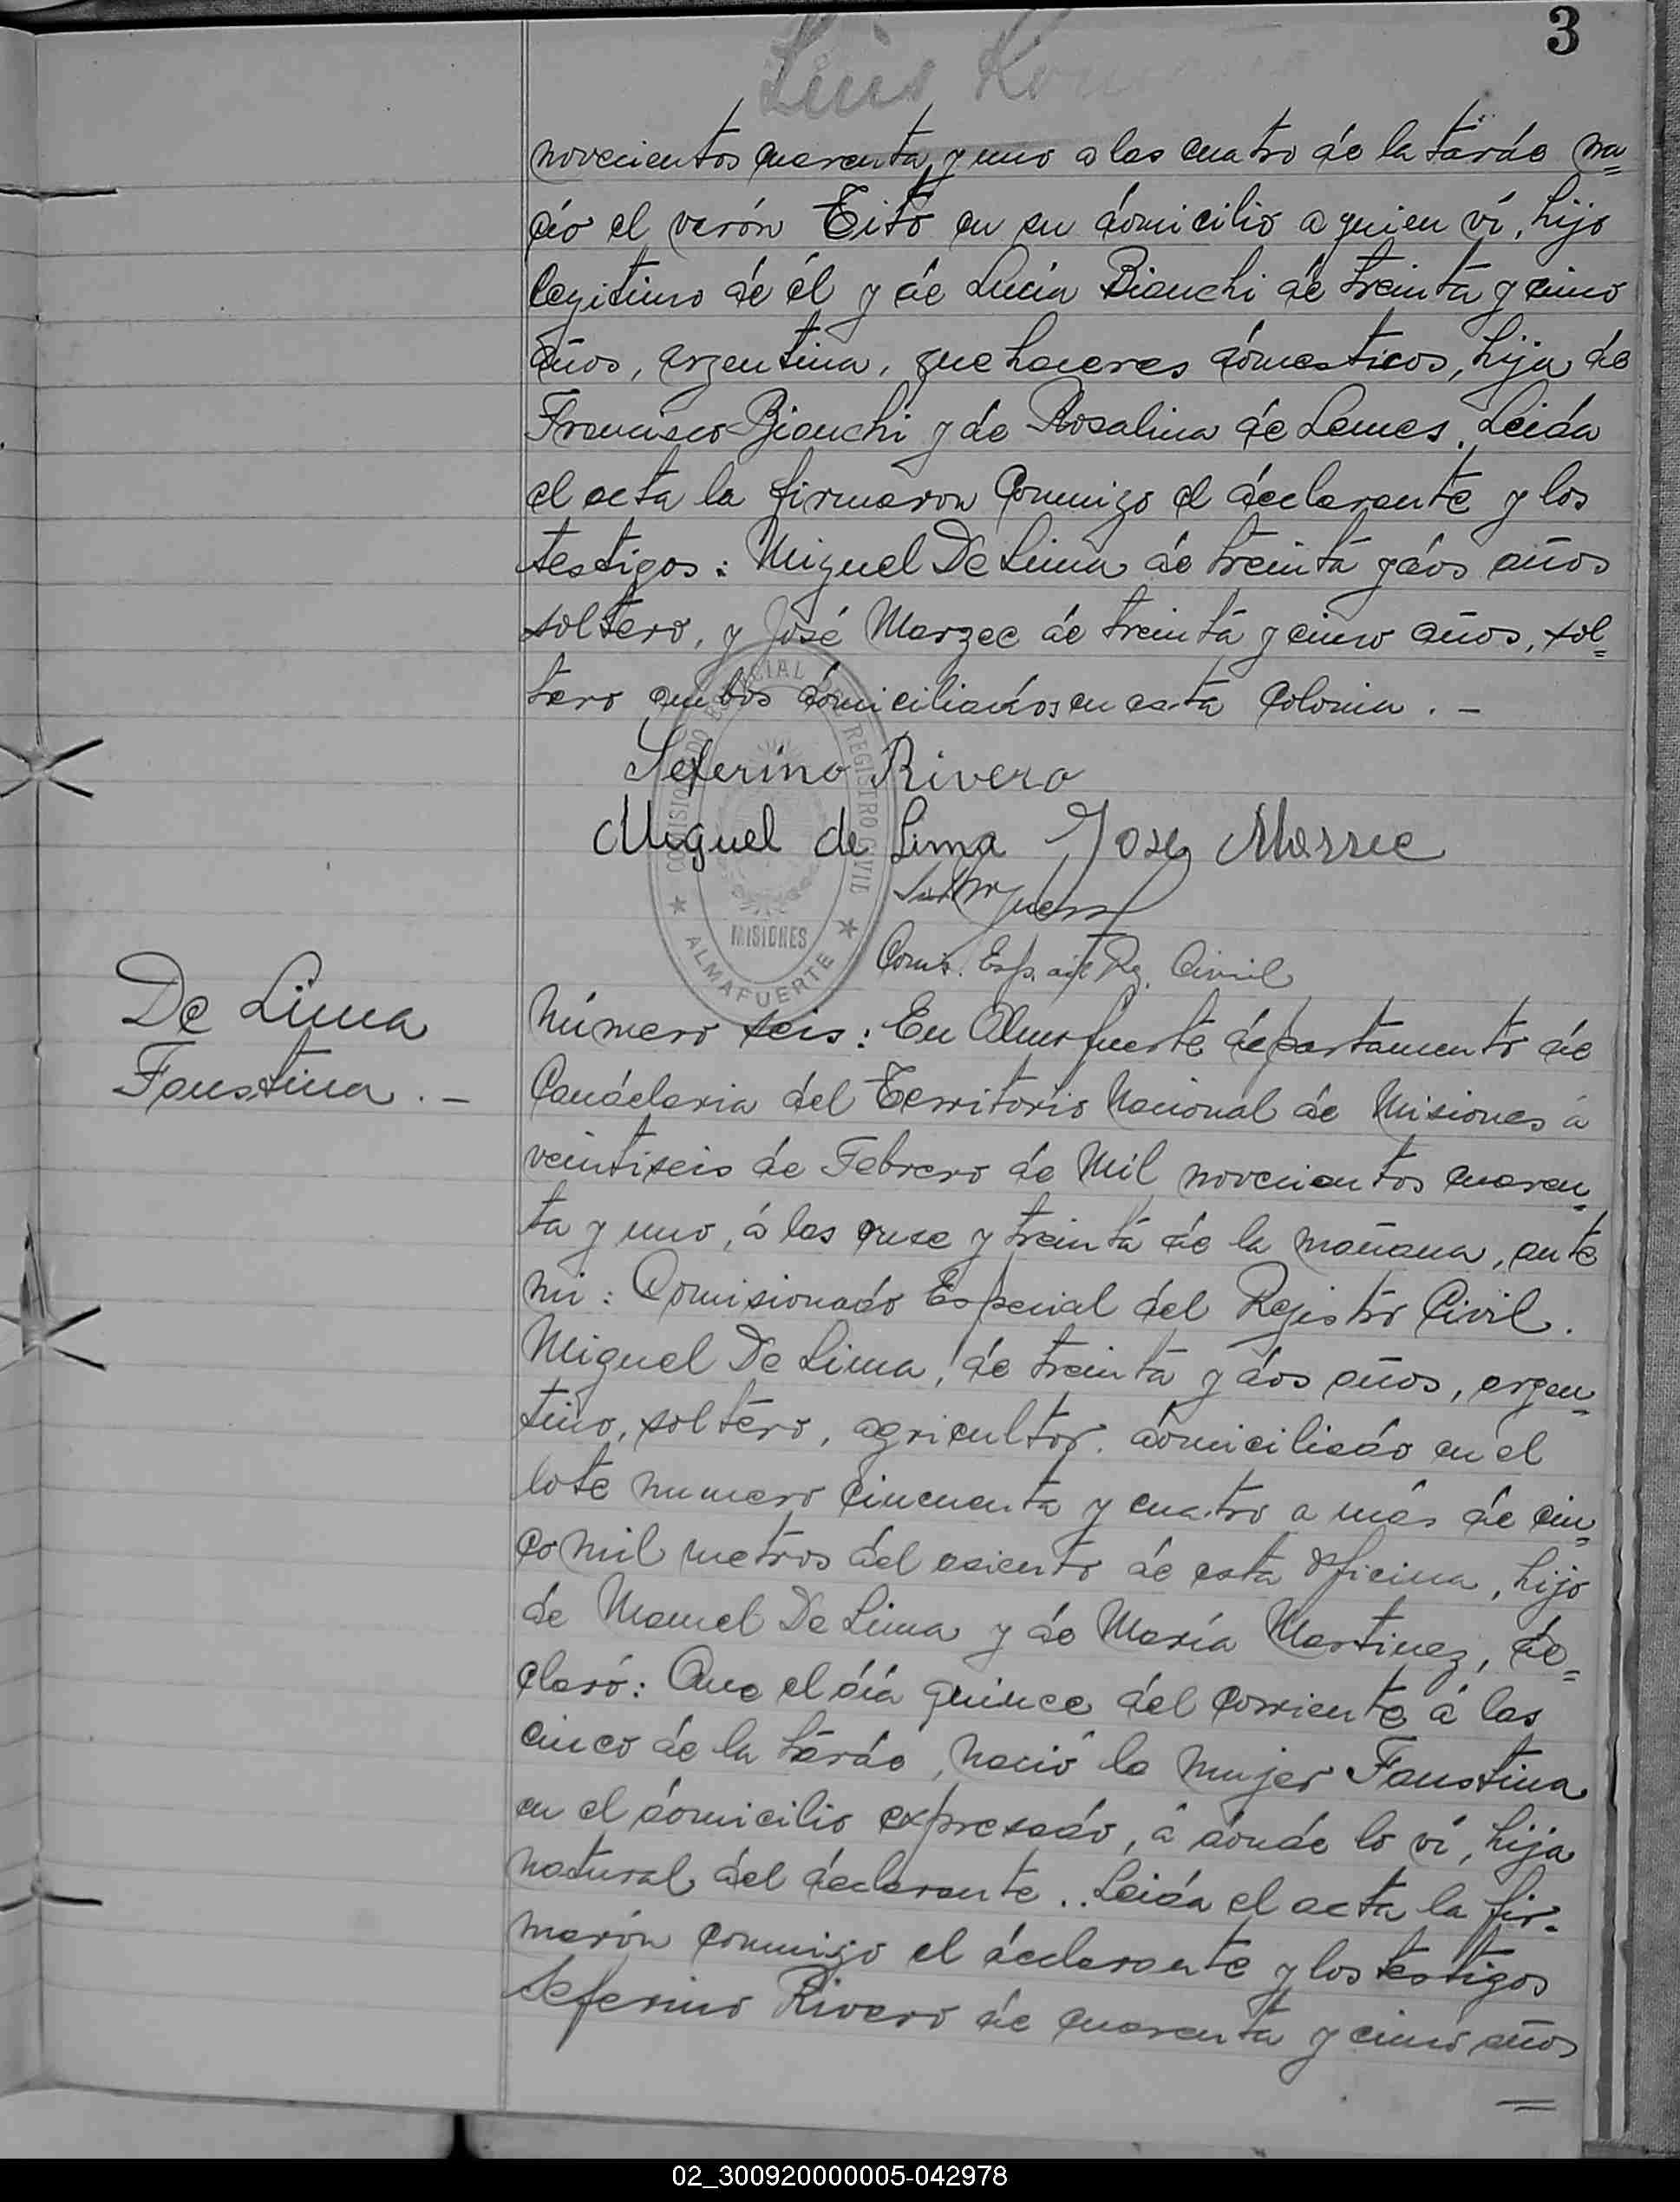 3
Luis
novecientos cuarenta y uno a las cuatro de la tarde na=
ció el varón Tito en su domicilio a quien ví, hijo
legitimo de él y de Lucía Bianchi de treinta y cinco
años, argentina, quehaceres domesticos, hija de
Francisco Bianchi y de Rosalina de Lemes. Leida
el acta la firmaron conmigo el declarante y los
testigos: Miguel De Lima de treinta y dos años
soltero, y José Marzec de treinta y cinco años, sol=
tero ambos domiciliados en esta colonia. -
Seferino Rivero
Miguel de Lima Jose Marzec
Com. Esp. del Rg. Civil
COMISIONADO ESPECIAL DEL REGISTRO CIVIL
MISIONES
ALMAFUERTE
De Lima
Faustina. -
Número seis: En Almafuerte departamento de
Candelaria del Territorio Nacional de Misiones á
veintiseis de Febrero de Mil novecientos cuaren=
ta y uno, á las once y treinta de la mañana, ante
mi: Comisionado Especial del Registro Civil.
Miguel De Lima, de treinta y dos años, argen=
tino, soltero, agricultor, domiciliado en el
lote numero cincuenta y cuatro a más de cin=
co mil metros del asiento de esta oficina, hijo
de Manuel De Lima y de María Martinez, de=
claró: Que el día quince del corriente á las
cinco de la tarde, nació la mujer Faustina
en el domicilio expresado, á donde lo ví, hija
natural del declarante.. Leida el acta la fir=
marón conmigo el declarante y los testigos
Seferino Rivero de cuarenta y cinco años
=
02_300920000005-042978